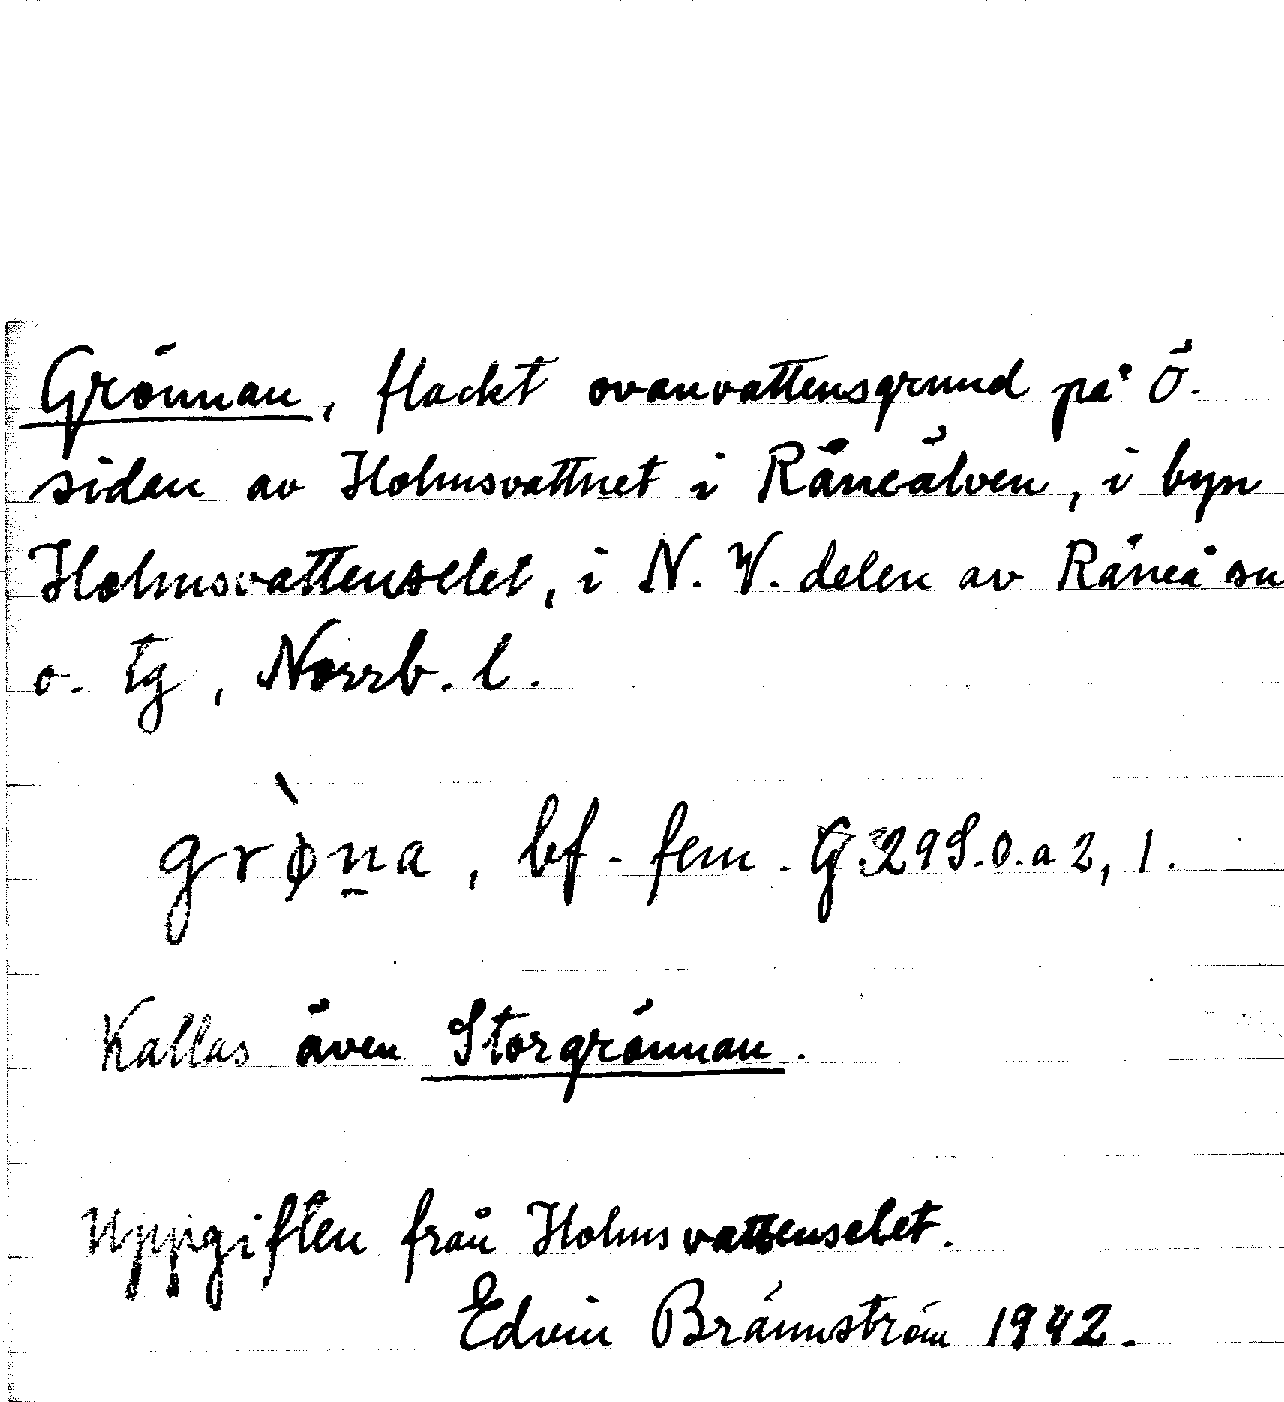 Grönnan, flackt ovanvattensgrund på Ö.
sidan av Holmsvattnet i Råneälven, i byn
Holmsvattenselet, i N. V. delen av Råneå sn
o. tg, Norrb. l.
grø̀n̠a, bf. fem. G. 29 S.O. a 2, 1.
Kallas även Storgrönnan.
Uppgiften från Holmsvattenselet.
Edvin Brännström 1942.